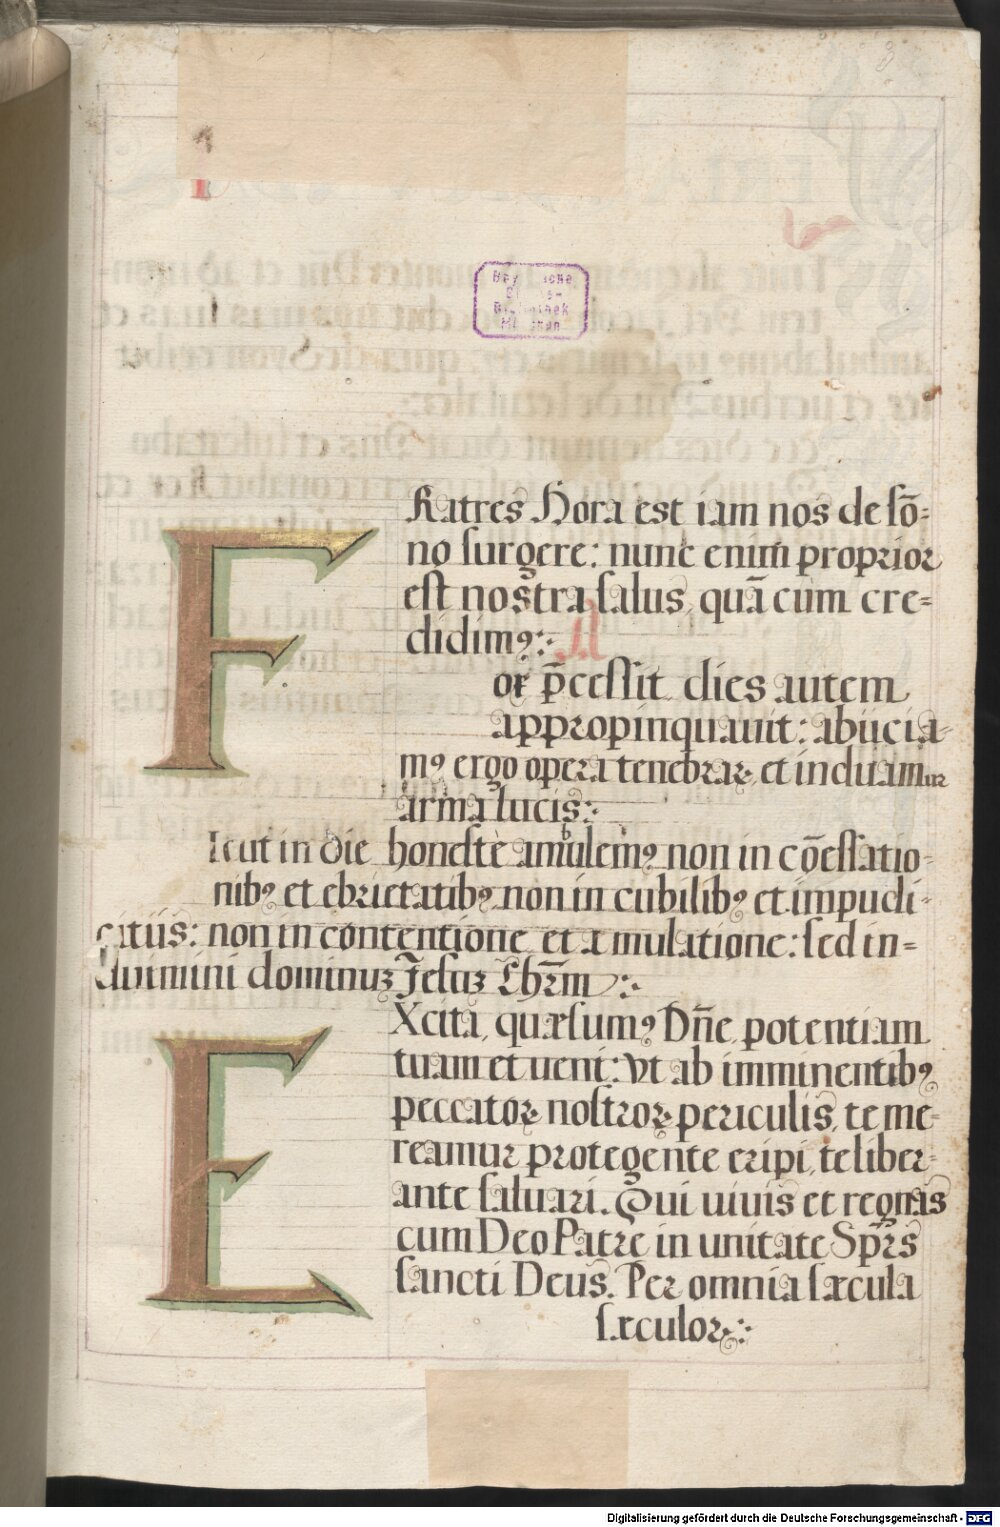 3
FRatres Hora est iam nos de sõ=
no surgere: nunc enim proprior
est nostra salus, quã cum cre=
didimꝯ:
ox p̃cessit dies autem
appropinquauit: abijcia-
mꝯ ergo opera tenebraꝝ, et induamur
arma lucis:
Icut in die honestè ambulemꝯ non in cõessatio-
nibꝯ et ebrietatibꝯ non in cubilibꝯ et impudi-
citiis: non in contentione et æmulatione: sed in=
duimini dominuʒ Jesuʒ Chr̃m
EXcita, quæsumꝯ Dñe, potentiam
tuam et ueni: vt ab imminentibꝯ
peccatoꝝ nostroꝝ periculis, te me-
reamur protegente eripi, te liber-
ante saluari. Qui uiuis et regnas
cum Deo Patre in unitate Sp̃rs
sancti Deus. Per omnia sæcula
sæculoꝝ:
Digitalisierung gefördert durch die Deutsche Forschungsgemeinschaft - DFG